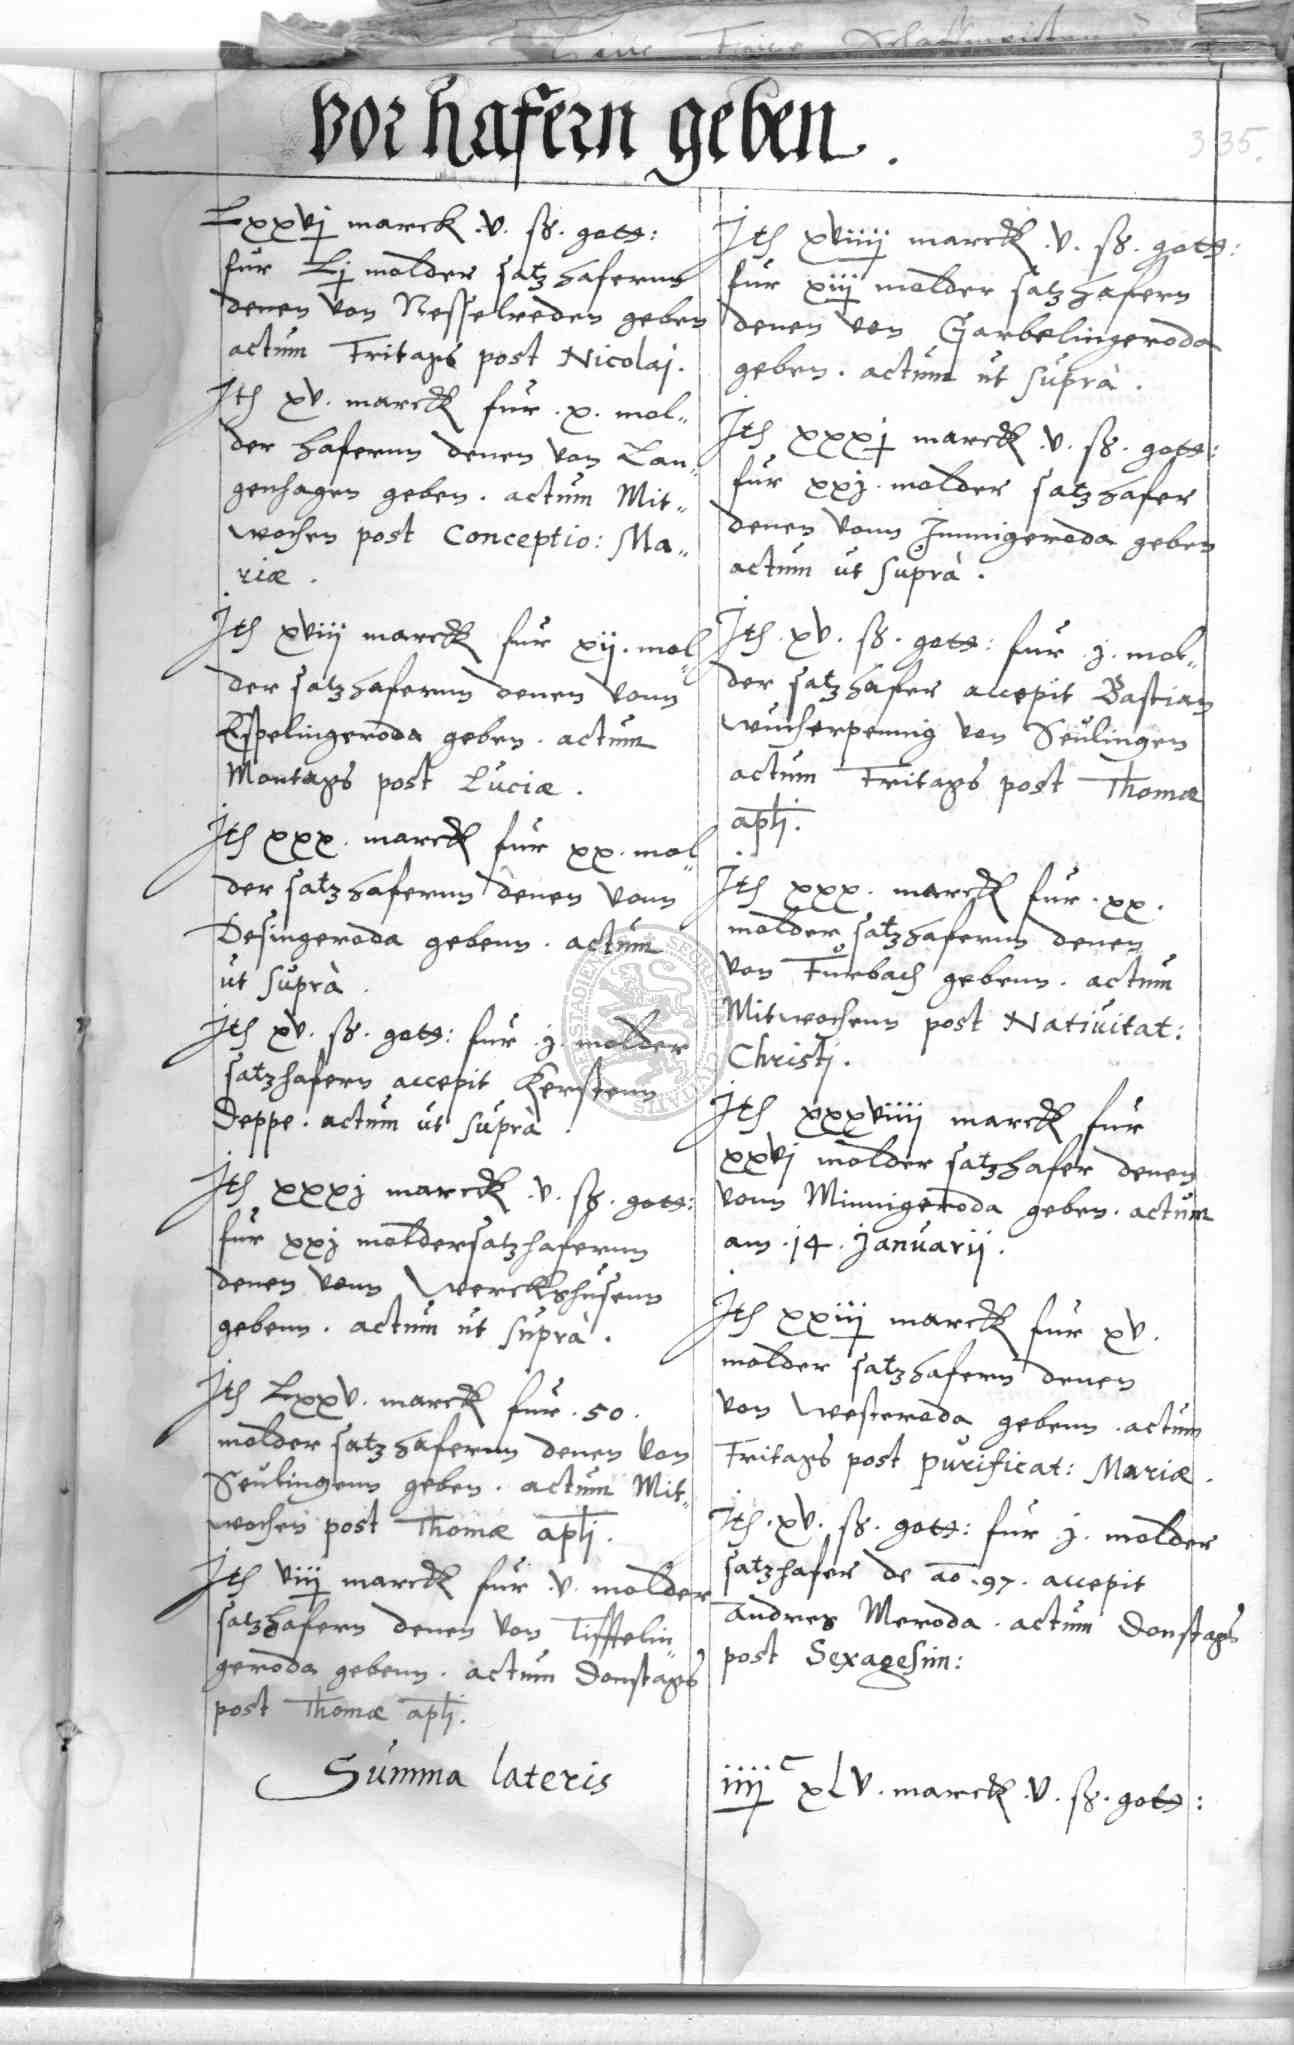 Vor hafern geben.
335.
Lxxvj marck .v. ß. gott:
fur Lj molder satzhafernn
denen von Nesselreden geben
actum Fritags post Nicolaj.
Jth xv. marck fur .x. mol„
der hafernn denen von Lan„
genhagen geben. actum Mit„
wochen post Conceptio: Ma„
riæ.
Jth xviij marck fur xij. mol„
der satzhafernn denen vonn
Espelingeroda geben. actum
Montags post Luciæ.
Jth xxx. marck fur xx. mol„
der satzhafernn denen vonn
Desingeroda gebenn. actum
ut suprà.
Jth xv. ß. gott: fur .j. molder
satzhafern accepit Kerstenn
Deppe. actum ut suprà.
Jth xxxj marck .v. ß. gott:
fur xxj moldersatzhafernn
denen vonn Werckshusenn
gebenn. actum ut suprà.
Jth Lxxv. marck fur .50.
molder satzhafernn denen von
Seulingenn geben. actum Mit„
wochen post Thomæ apli.
Jth viij marck fur .v. molder
satzhafern denen von Tifftelin„
geroda gebenn. actum Donstags
post Thomæ apli.
Summa lateris
Jth xviiij marck .v. ß. gott:
fur xiij molder satzhafern
denen von Garbelingeroda
geben. actum ut suprà.
Jth xxxj marck .v. ß. gott:
fur xxj. molder satzhafer
denen vonn Immigeroda geben
actum ut suprà.
Jth .xv. ß. gott: fur .j. mol„
der satzhafer accepit Bastian
Wucherpennig von Seulingen
actum Fritags post Thomæ
apli.
Jth xxx. marck fur .xx.
molder satzhafernn denen
von Fürbach gebenn. actum
Mitwochenn post Nativitat:
Christj.
Jth xxxviiij marck fur
xxvj molder satzhafer denen
vonn Minnigeroda geben. actum
am .14. Januarij.
Jth xxiij marck fur xv.
molder satzhafern denen
von Westeroda gebenn. actum
Fritags post purificat: Mariæ.
Jth .xv. ß. gott: fur .j. molder
satzhafer de ao .97. accepit
Andres Meroda. actum Donstags
post Sexagesim:
iiijC xLv. marck .v. ß. gott: